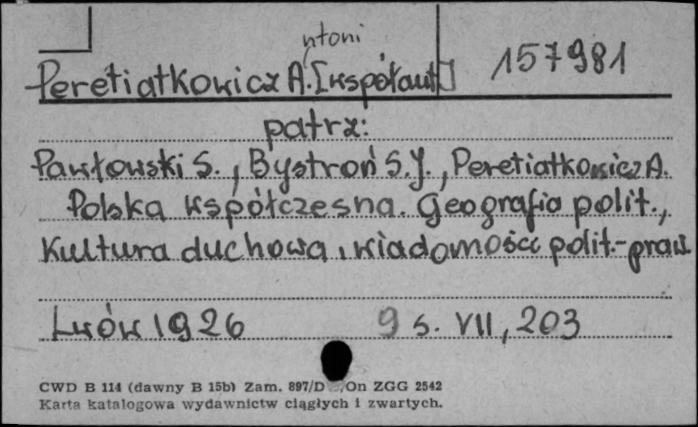 ntoni
Peretiatkowicz A. [współaut] 157981
patrz:
Pawłowski S., Bystroń S.J., Peretiatkowicz A.
Polska współczesna. Geografia polit.,
kultura duchowa, wiadomości polit.-praw.
Lwów 1926 9 s. VII, 203
CWD B 114 (dawny B 15b) Zam. 897/D On ZGG 2542
Karta katalogowa wydawnictw ciągłych i zwartych.